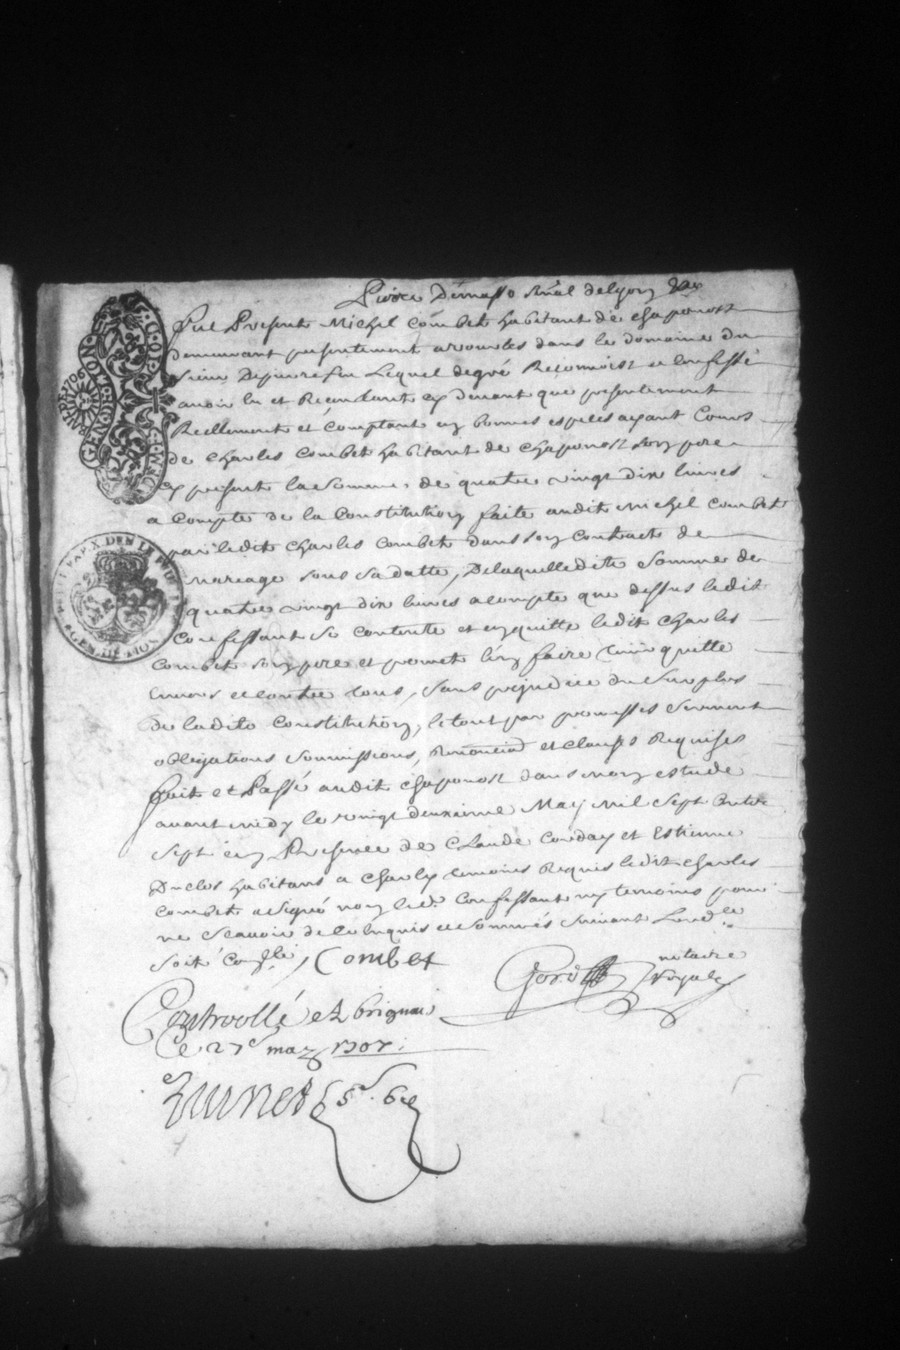 Fut Present Michel Combet habitant de chaponost
demeurant presentement a vourles dans le domaine du
sieur Lequel de gré Reconnoist et confesse
avoir eu et Receu cy devant que presentement
Reellement et Comptant en bonnes especes ayant Cours
de charles Combet habitant de chaponost son pere
cy present la somme de quatre vingt dix livres
a Compte de la Constitution faite audit michel combet
par ledit charles Combet dans son Contract de
mariage sous sa datte, De laquelle dite somme de
quatre vingt dix livres a compte que dessus ledit
Confessant se contente et en quitte ledit charles
Combet son pere et promet l'en faire tenir quitte
envers et contre tous, sans prejudice du surplus
de ladite Constitution, le tout par promesses serment
obligations soumissions, et clauses Requises
fait et Passé audit chaponost dans mon estude
avant midy le vingt deuxieme May mil sept cents
sept en Presence de Claude Corday et Estienne
Duclos habitans a Charly temoins Requis ledit charles
Combet a signé non led. Confessant ny temoins pour
ne scavoir de ce enquis et sommés suivant Lord.ce
soit con.llé, Combet
notaire
Royal
Controollé et a brignais
Ce 27e may 1707.
5s. 6d
GEN. DE LION